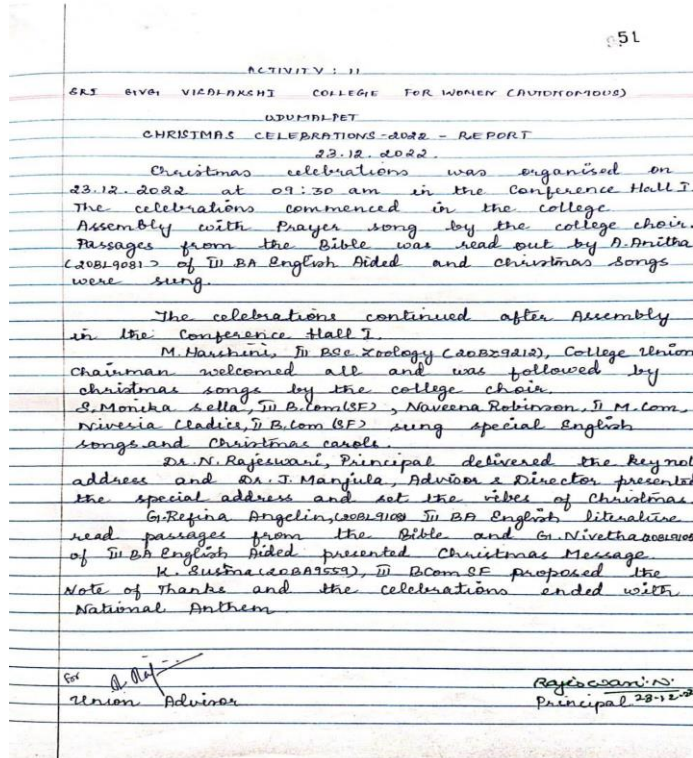 51
ACTIVITY : 11
SRI GVG VISALAKSHI COLLEGE FOR WOMEN (AUTONOMOUS)
UDUMALPET
CHRISTMAS CELEBRATIONS-2022 - REPORT
23.12.2022.
Christmas celebrations was organised on
23.12.2022 at 09:30 am in the Conference Hall I.
The celebrations commenced in the college
Assembly with Prayer song by the college choir.
Passages from the Bible was read out by A.Anitha
(20BL9081) of III BA English Aided and christmas songs
were sung.
The celebrations continued after Assembly
in the Conference Hall I.
M. Harshini, III BSc. Zoology (20BZ9212), College Union
Chairman welcomed all and was followed by
christmas songs by the college choir.
S.Monika sella, III B.Com(SF), Naveena Robinson, II M.Com,
Nivesia Cladies, II B.Com (SF) sung special English
songs and Christmas carols.
Dr. N. Rajeswari, Principal delivered the key not
address and Dr. J. Manjula, Advisor & Director presented
the special address and set the vibes of Christmas.
G.Refina Angelin, (20BL9108 III BA English literature
read passages from the Bible and G. Nivetha 20BL9105
of III BA English Aided presented Christmas Message.
K. Susma (20BA9559), III BCom SF proposed the
Note of Thanks and the celebrations ended with
National Anthem.
For
Union Advisor
Rajeswari.N.
Principal 23-12-22